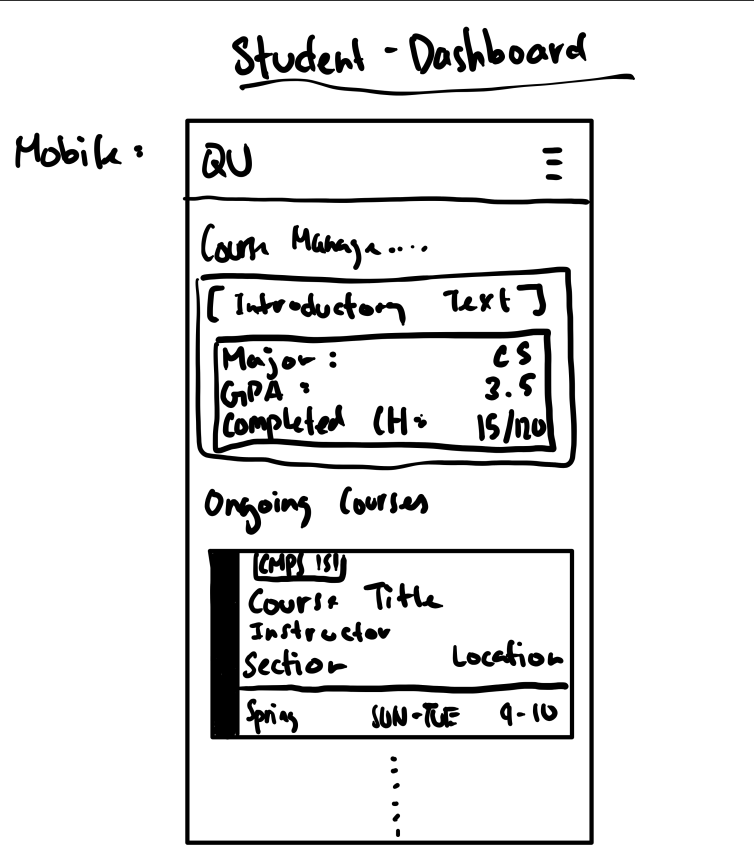 Student - Dashboard
Mobile:
QU
Course Manage....
[ Introductory Text ]
Major: CS
GPA: 3.5
Completed CH: 15/120
Ongoing Courses
CMPS 151
Course Title
Instructor
Section Location
Spring SUN-TUE 9-10